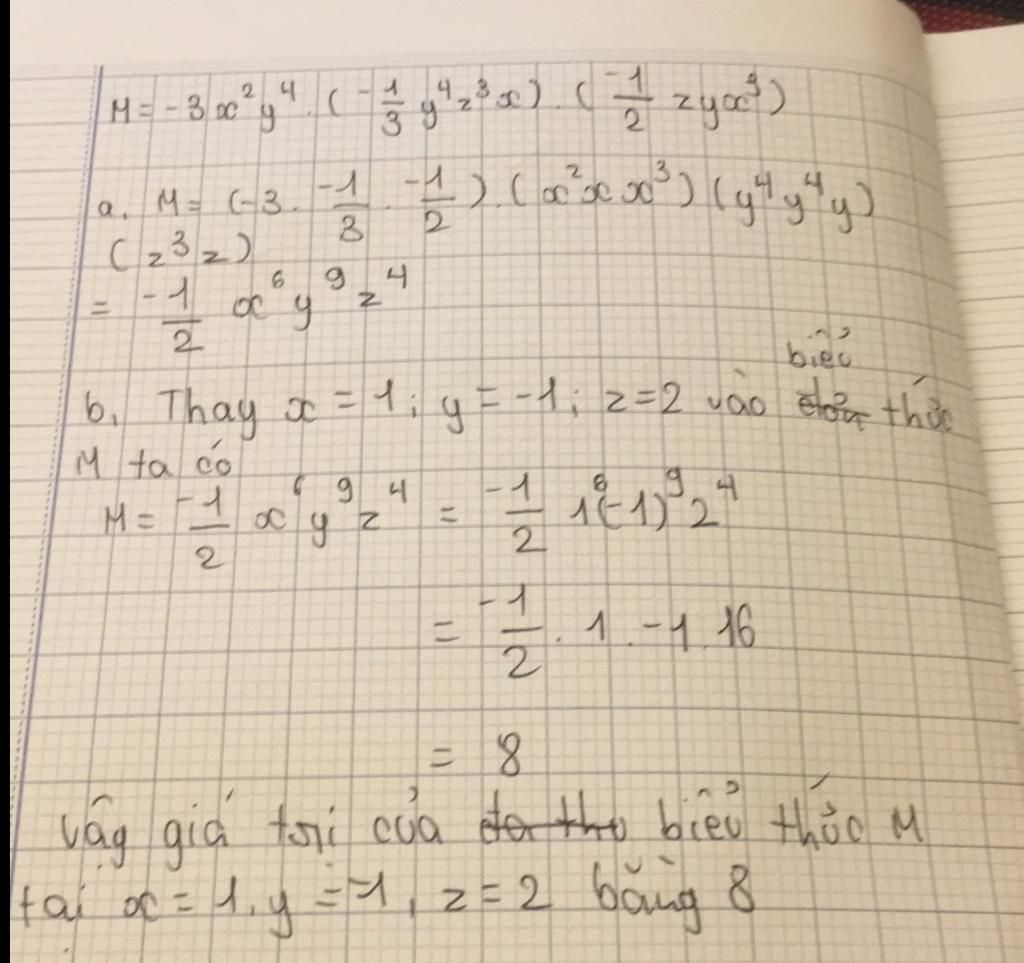 M = -3x²y⁴ . (-1/3 y⁴z³x) . (-1/2 zyx³)
a, M = (-3 . -1/3 . -1/2) . (x²xx³) (y⁴y⁴y)
(z³z)
= -1/2 x⁶y⁹z⁴
b, Thay x = 1; y = -1; z = 2 vào biểu thức
M ta có
M = -1/2 x⁶y⁹z⁴ = -1/2 1⁶(-1)⁹2⁴
= -1/2 . 1 . -1 . 16
= 8
Vậy giá trị của biểu thức M
tại x = 1, y = -1, z = 2 bằng 8